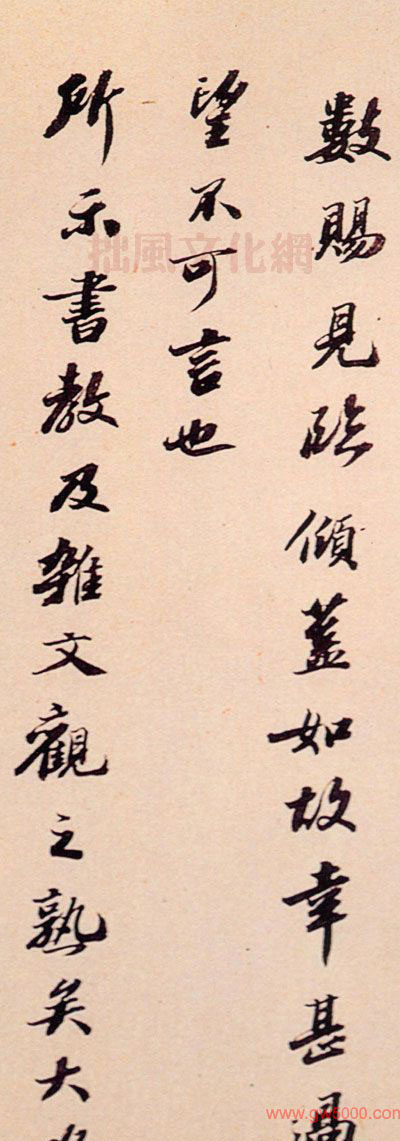 數賜見臨傾蓋如故幸甚過
望不可言也
所示書教及雜文觀之熟矣大
拙風文化網
www.gw5000.com